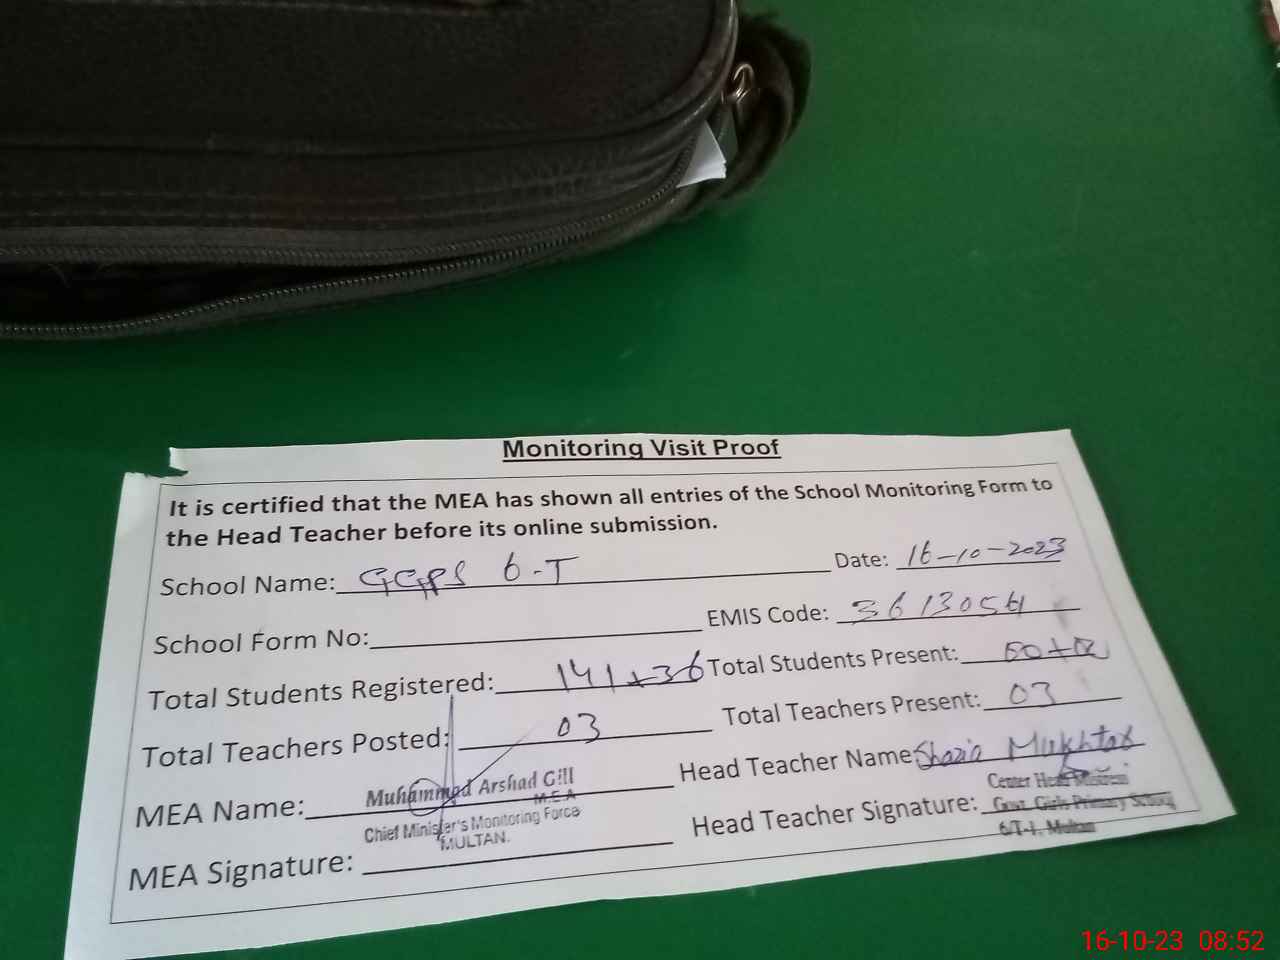 Monitoring Visit Proof
It is certified that the MEA has shown all entries of the School Monitoring Form to
the Head Teacher before its online submission.
School Name: GGPS 6-T Date: 16-10-2023
School Form No: EMIS Code:
Total Students Registered: 141+36 Total Students Present:
Total Teachers Posted: 03 Total Teachers Present: 03
MEA Name: Muhammad Arshad Gill Head Teacher Name: Shazia Mukhtar
M.E.A
Chief Minister's Monitoring Force
MULTAN.
MEA Signature: Head Teacher Signature:
Center Head Mistress
Govt. Girls Primary School
6/T-1, Multan
16-10-23 08:52